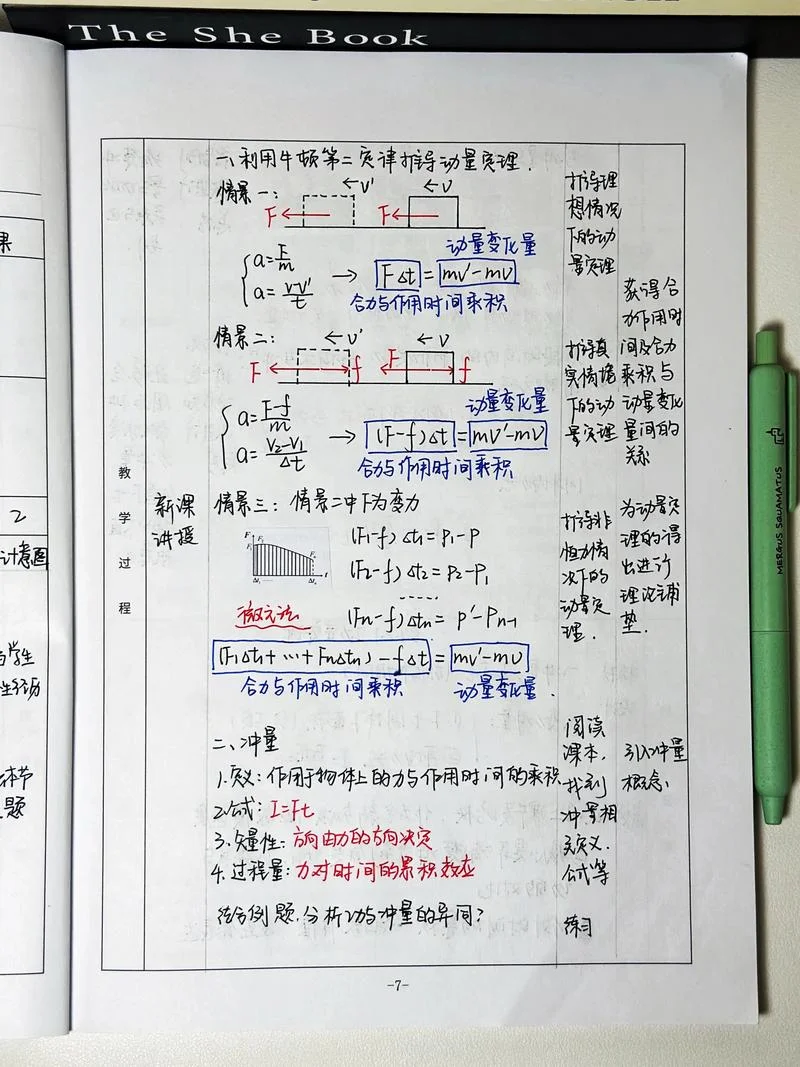 The She Book
果
2
计意图
教
学
过
程
新课
讲授
一、利用牛顿第二定律推导动量定理.
情景一:
←v'
←v
F
F
动量变化量
a=F/m
a=v-v'/t
→ FΔt = mv'-mv
合力与作用时间乘积
情景二:
←v'
←v
F f F f
动量变化量
a=F-f/m
a=v₂-v₁/Δt
→ (F-f)Δt = mv'-mv
合力与作用时间乘积
情景三: 情景二中F为变力
(F₁-f)Δt₁=p₁-p
(F₂-f)Δt₂=p₂-p₁
......
微元法
(Fn-f)Δtn=p'-Pn-1
(F₁Δt₁+…+FnΔtn)-fΔt = mv'-mv
合力与作用时间乘积
动量变化量.
二、冲量
1.定义:作用于物体上的力与作用时间的乘积
2.公式: I=Ft
3.矢量性: 方向由力的方向决定
4.过程量: 力对时间的累积效应
结合例题,分析功与冲量的异同?
推导理
想情况
下的动
量定理
推导真
实情境
下的动
量定理
推导非
恒力情
况下的
动量定
理.
阅读
课本,
找到
冲量相
关定义.
公式等
练习
获得合
力作用时
间及合力
乘积与
动量变化
量间的
关系
为动量定
理的得
出进行
理论铺
垫.
引入冲量
概念.
-7-
MERGUS SQUAMATUS